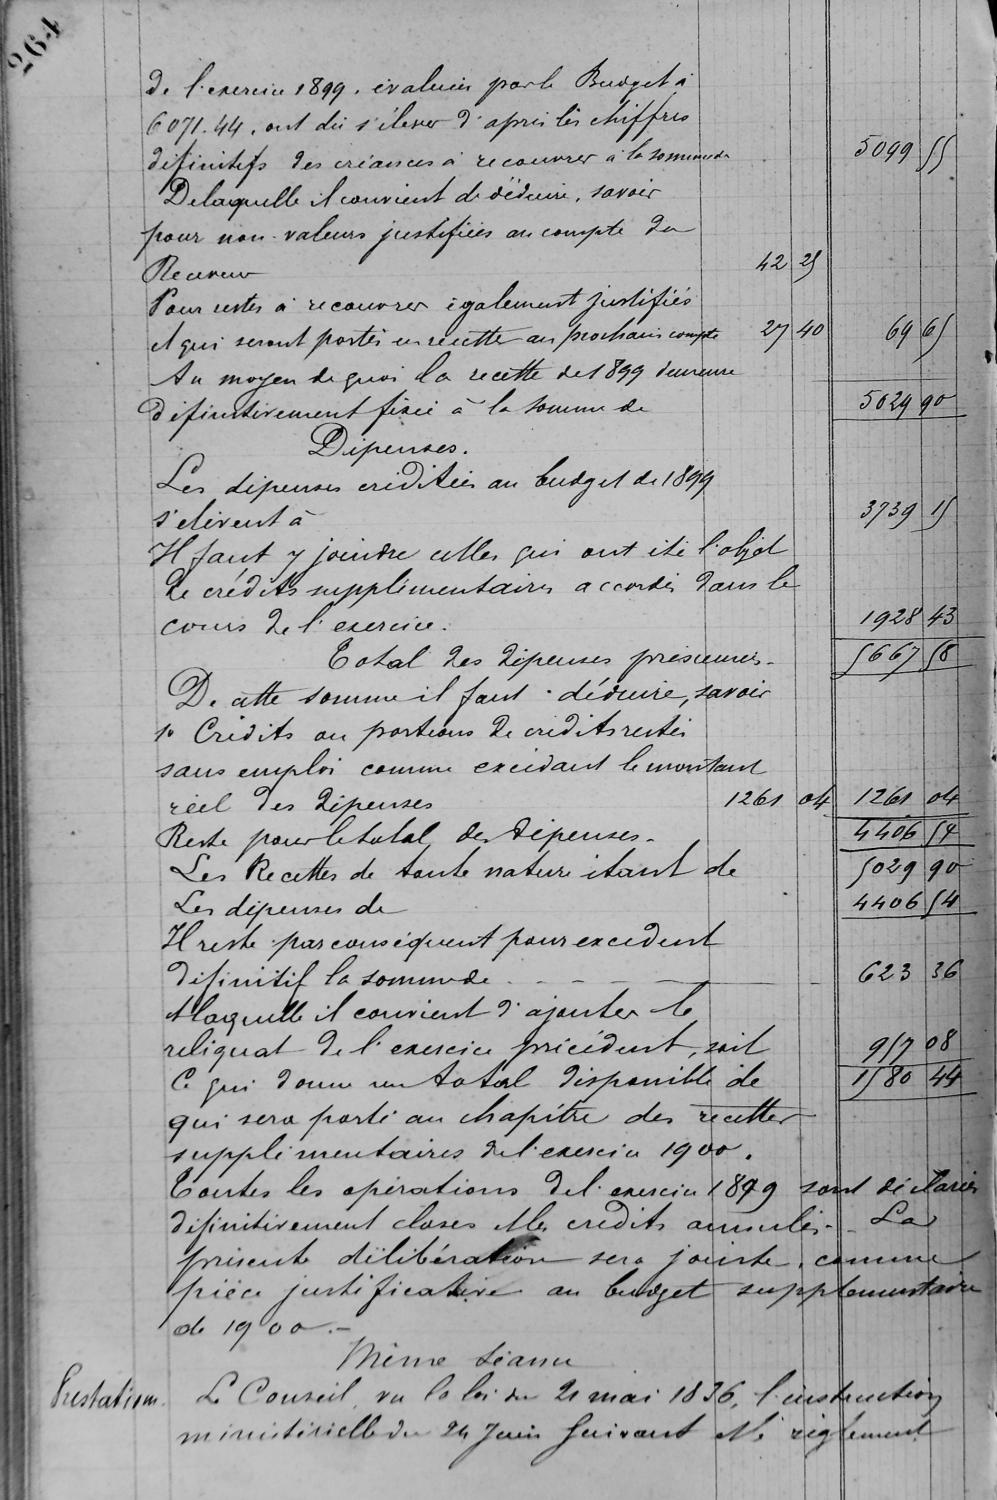 264
de l'exercice 1899, évaluées par le Budget à
6071.44, ont dû s'élever d'après les chiffres
définitifs des créances à recouvrer à la somme de 5099 55
De laquelle il convient de déduire, savoir
pour non-valeurs justifiées au compte du
Receveur 42 25
Pour restes à recouvrer également justifiés
et qui seront portés en recette au prochain compte 27 40 69 65
Au moyen de quoi la recette de 1899 demeure
définitivement fixée à la somme de 5029 90
Dépenses.
Les dépenses créditées au budget de 1899
s'élèvent à 3739 15
Il faut y joindre celles qui ont été l'objet
de crédits supplémentaires accordés dans le
cours de l'exercice. 1928 43
Total des dépenses présumées - 5667 58
De cette somme il faut déduire, savoir
1° Crédits ou portions de crédits restés
sans emploi comme excédant le montant
réel des dépenses 1261 04 1261 04
Reste pour le total des dépenses - 4406 54
Les Recettes de toute nature étant de 5029 90
Les dépenses de 4406 54
Il reste par conséquent pour excédent
définitif la somme de 623 36
A laquelle il convient d'ajouter le
reliquat de l'exercice précédent, soit 957 08
Ce qui donne un total disponible de 1580 44
qui sera porté au chapitre des recettes
supplémentaires de l'exercice 1900.
Toutes les opérations de l'exercice 1899 sont déclarées
définitivement closes et les crédits annulés - La
présente délibération sera jointe, comme
pièce justificative au budget supplémentaire
de 1900.-
Même séance
Prestations. Le Conseil, vu la loi du 21 mai 1836, l'instruction
ministérielle du 24 Juin suivant et le règlement